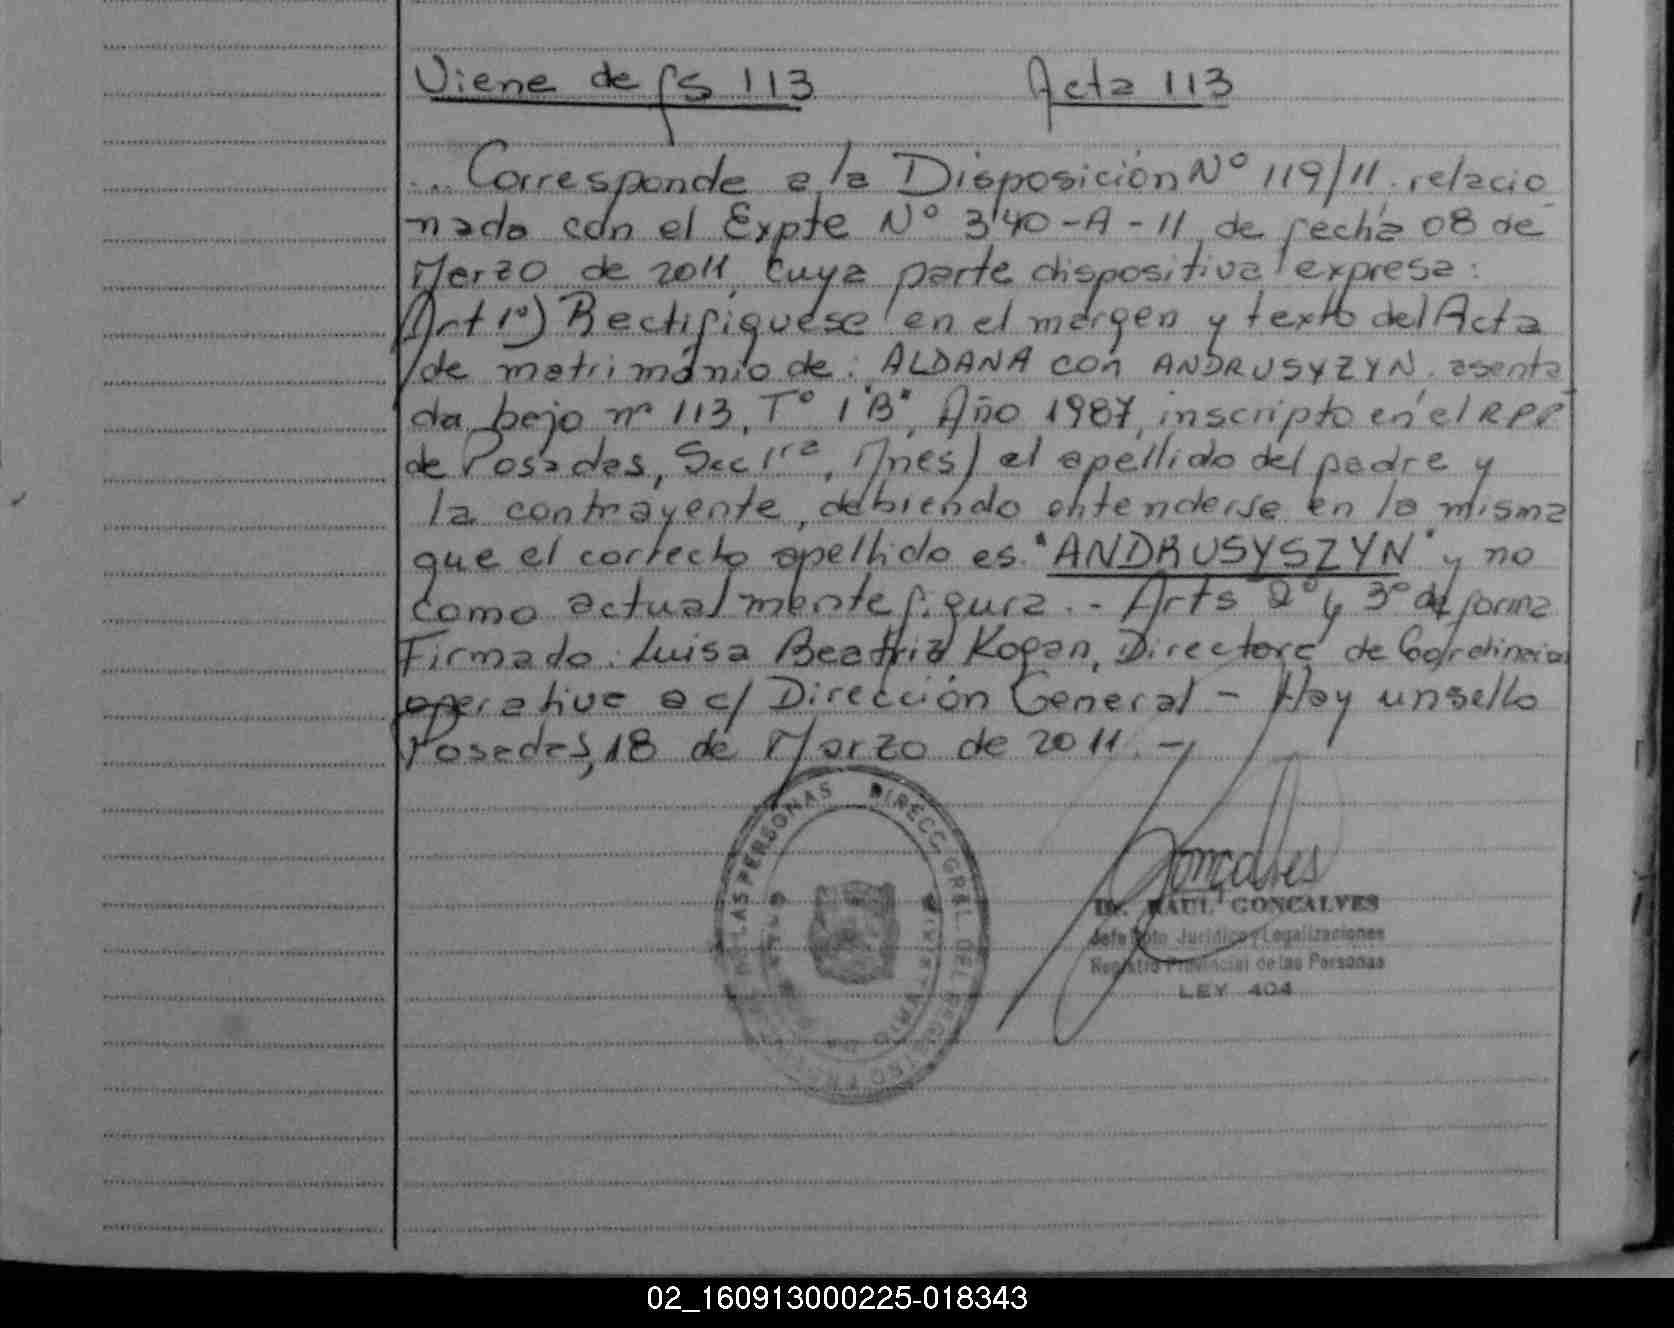 Viene de fs 113 Acta 113
... Corresponde a la Disposición Nº 119/11. relacio
nada con el Expte Nº 340-A-11, de fecha 08 de
Marzo de 2011, cuya parte dispositiva expresa:
Art 1º) Rectifíquese en el margen y texto del Acta
de matrimonio de: ALDANA con ANDRUSYZYN. asenta
da bajo nº 113, Tº 1"B", Año 1987, inscripto en el RPP
de Posadas, Sec 1ra, Mnes) el apellido del padre y
la contrayente, debiendo entenderse en la misma
que el correcto apellido es "ANDRUSYSZYN" y no
como actualmente figura.- Arts 2º y 3º de forma
Firmado: Luisa Beatriz Kogan, Directora de Coordinación
operativa a c/ Dirección General - Hay un sello
Posadas, 18 de Marzo de 2011.-
DIRECC GRAL DEL REGISTRO DE LAS PERSONAS
Goncalves
Dr. RAUL GONCALVES
Jefe Dpto Jurídico y Legalizaciones
Registro Provincial de las Personas
LEY 404
02_160913000225-018343